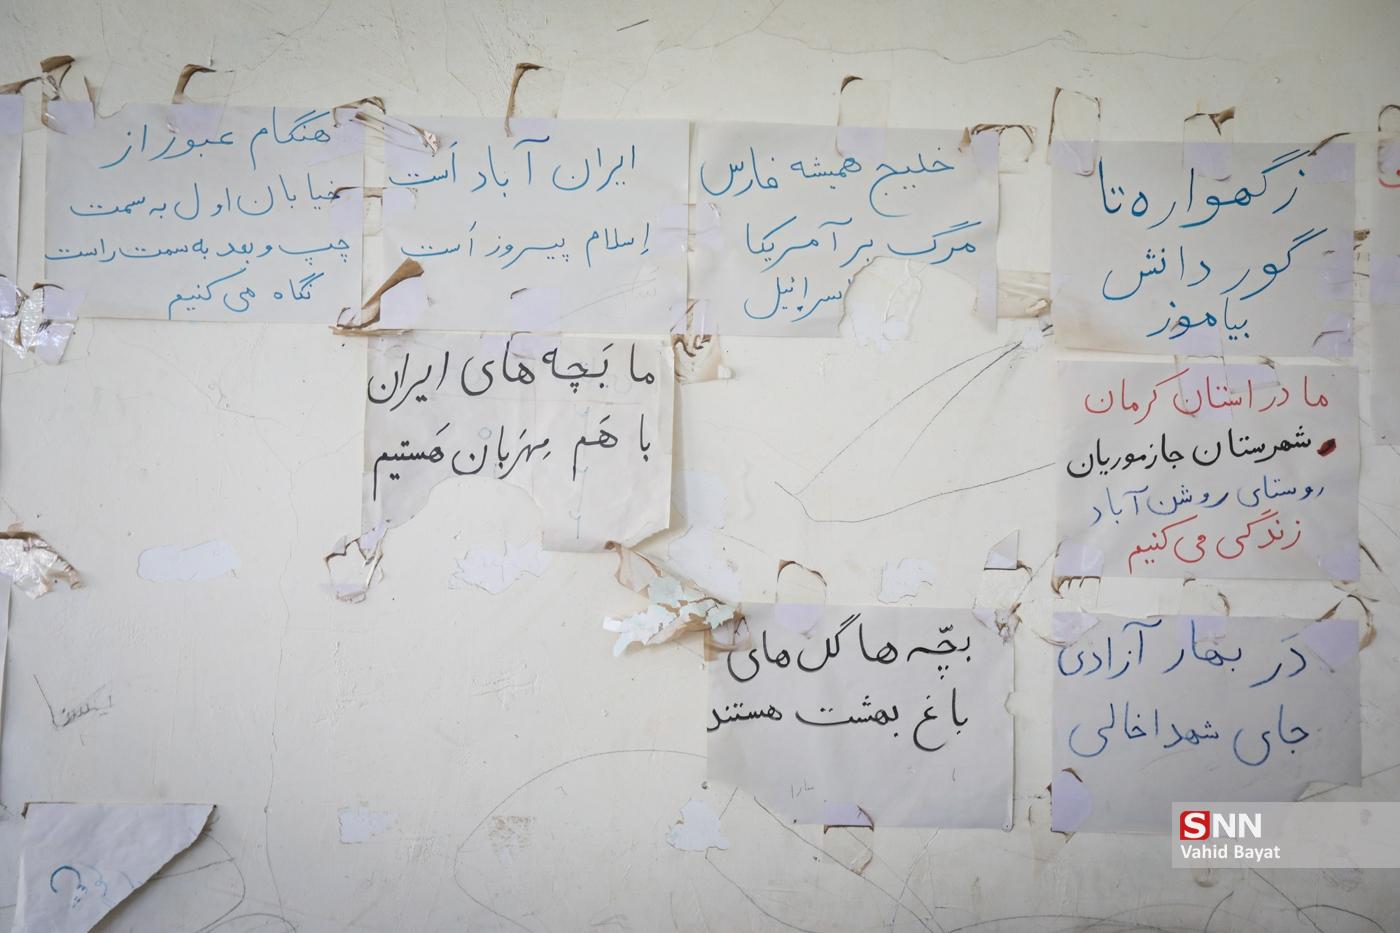 ز گهواره تا
گور دانش
بیاموز
خلیج همیشه فارس
مرگ بر آمریکا
اسرائیل
ایران آباد اَست
اِسلام پیروز اَست
هنگام عبور از
خیابان اول به سمت
چپ و بعد به سمت راست
نگاه می کنیم
ما در استان کرمان
شهرستان جازموریان
روستای روشن آباد
زندگی می کنیم
ما بَچه های ایران
با هَم مِهرَبان هَستیم
دَر بهار آزادی
جای شهدا خالی
بچّه ها گل های
باغ بهشت هستند
سارا
SNN
Vahid Bayat